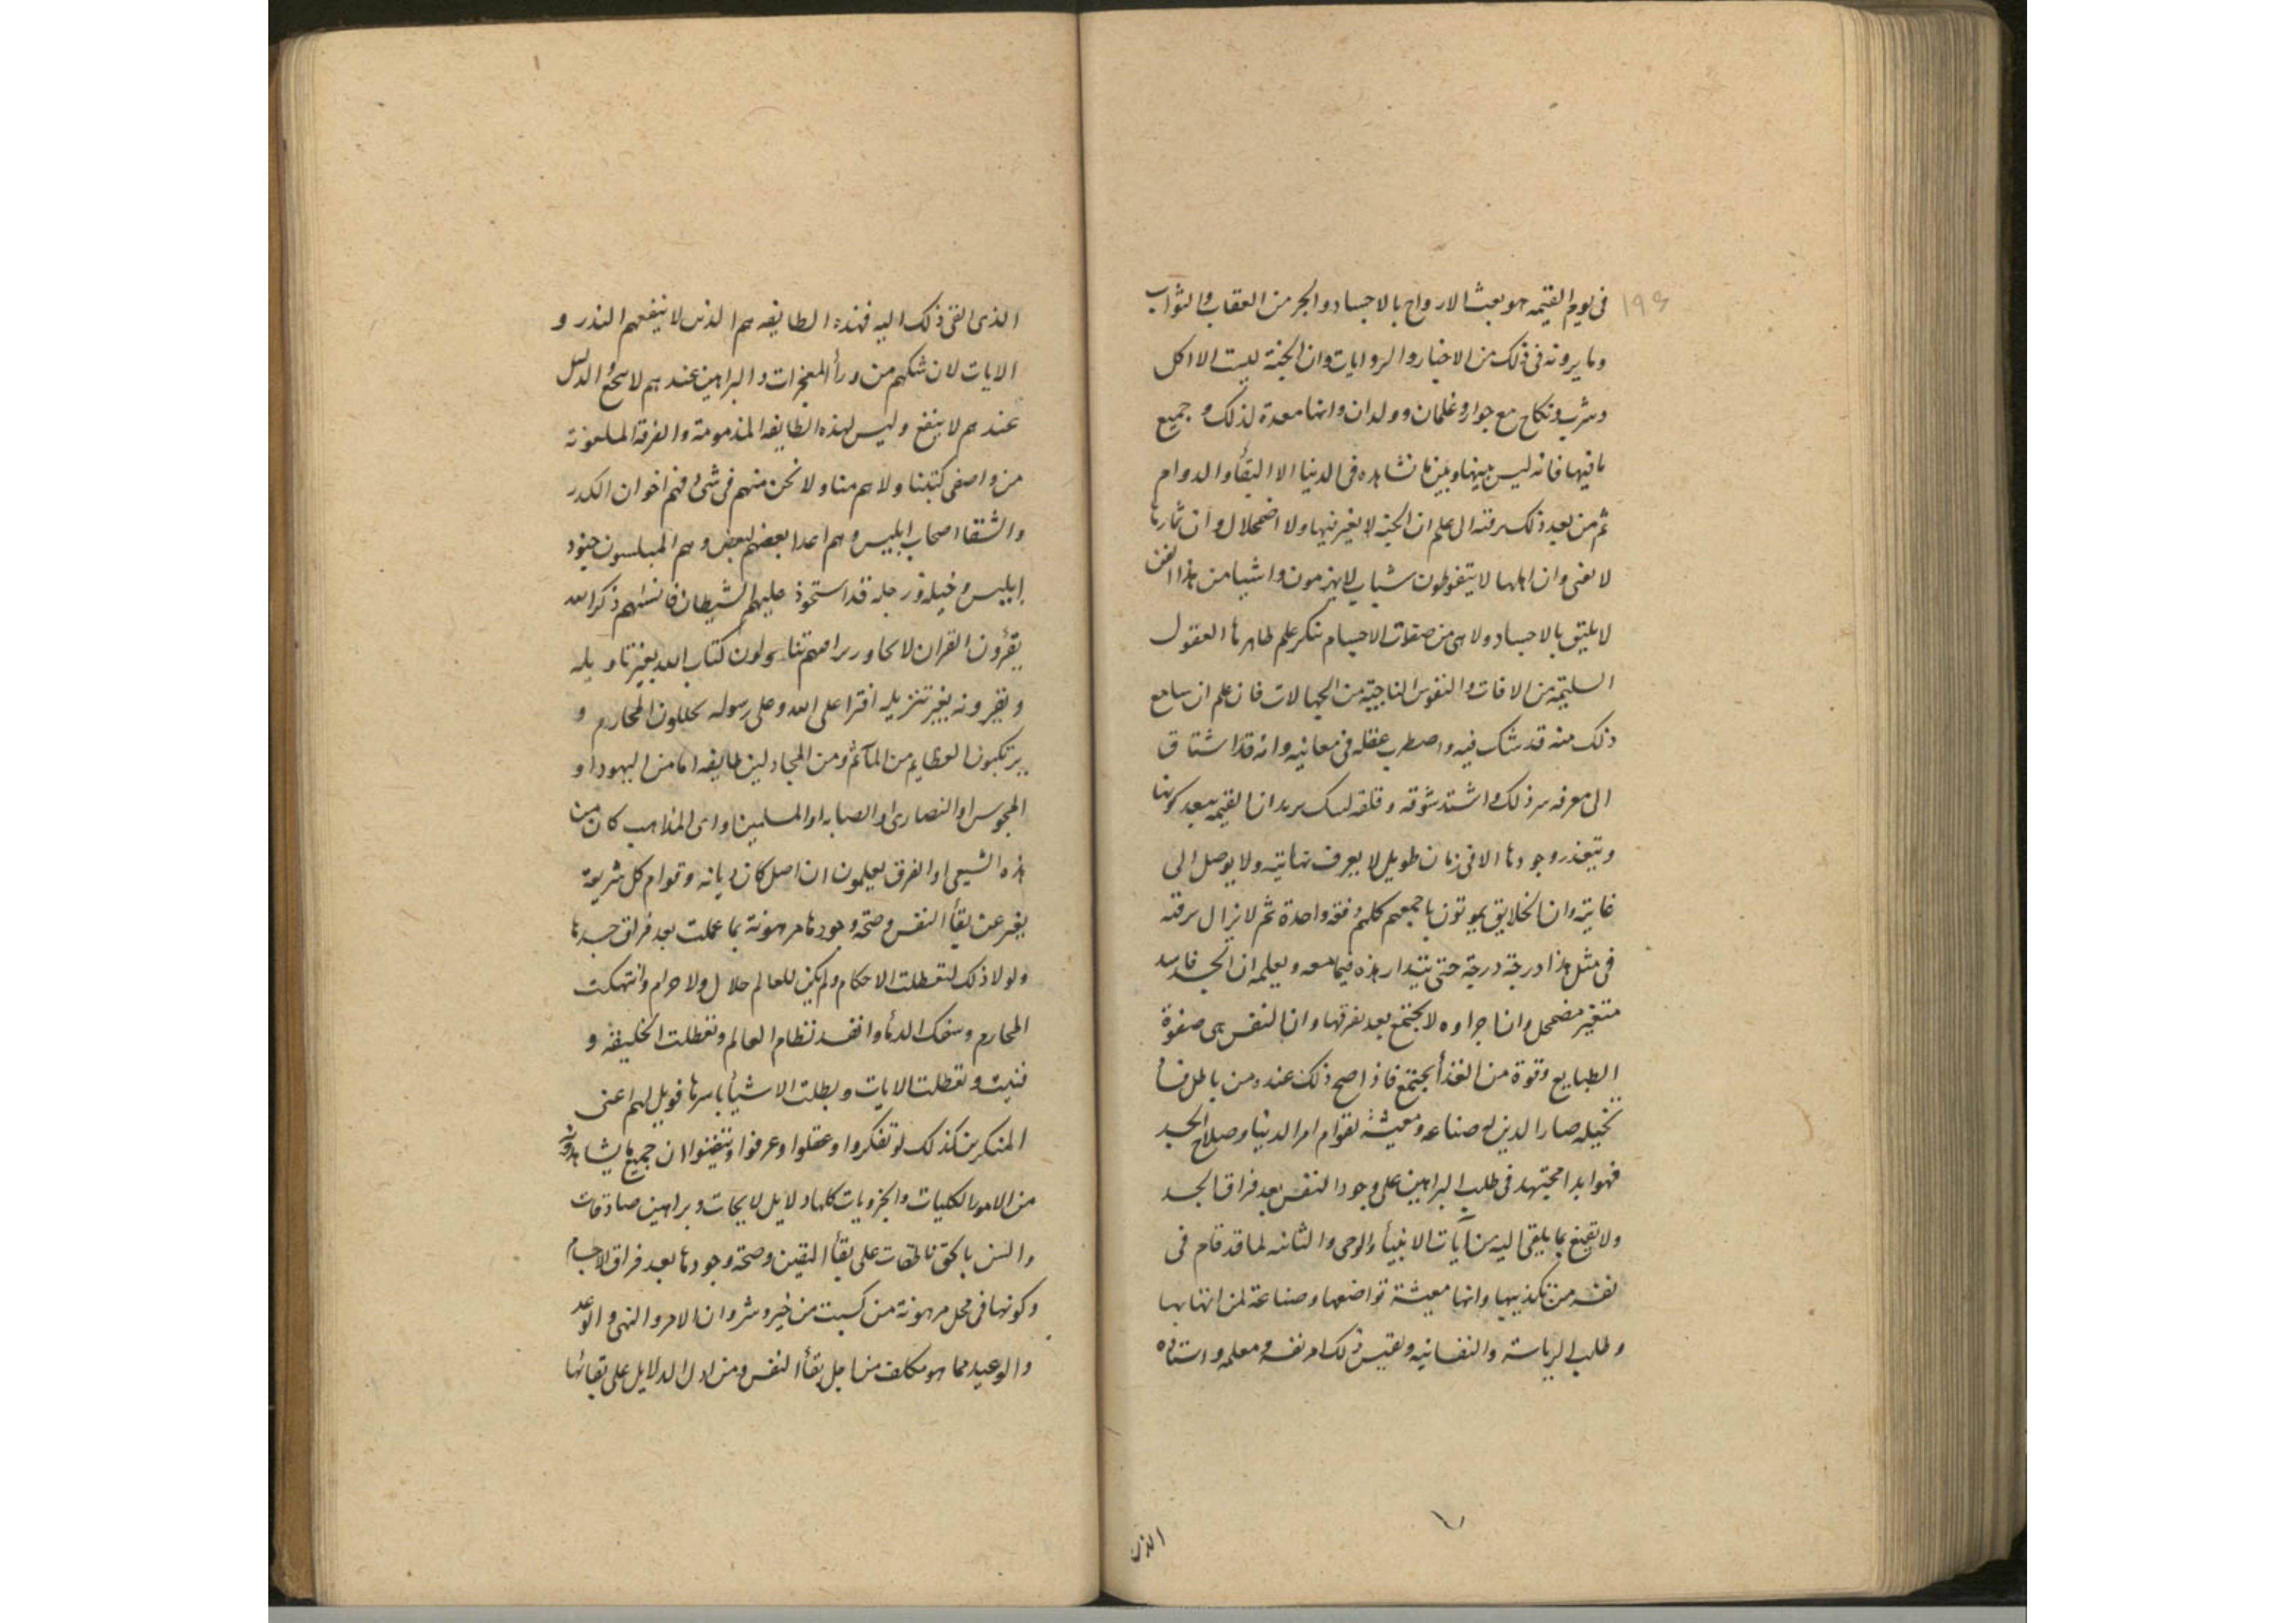 ١٩٤
فى يوم القيمه هو بعث الارواح بالاجساد والجر من العقاب والثواب
وما يرونه فى ذلك من الاخبار والروايات وان الجنة ليست الا اكل
وشرب ونكاح مع جوار وغلمان وولدان وانها معدة لذلك وجميع
ما فيها فانه ليس بينها وبين ما نشاهده فى الدنيا الا البقأ والدوام
ثم من بعد ذلك يرقته الى علم ان الجنة لا تغير فيها ولا اضمحلال وان ثمارها
لا تفنى وان اهلها لا يتغوطون شباب لا يهرمون واشيا من هذا الفن
لا يليق بالاجساد ولا هى من صفات الاجسام تنكر علم ظاهرها العقول
السليمة من الافات والنفوس الناجية من الجهالات فان علم ان سامع
ذلك منه قد شك فيه واضطرب عقله فى معانيه وانه قد اشتاق
الى معرفه سر ذلك واشتد شوقه وقلقه ان القيمه يبعد كونها
ويتعذر وجودها الا فى زمان طويل لا يعرف نهايته ولا يوصل الى
غايته وان الخلايق يموتون باجمعهم كلهم دفقه واحدة ثم لا يزال يرقته
فى مثل هذا درجة درجة حتى هذه فيما معه ويعلمه ان الجسد فاسد
متغير مضمحل وان اجزاوه لا يجتمع بعد تفرقها وان النفس هى صفوة
الطبايع وقوة من الغذأ يجتمع فاذا صح ذلك عنده من باطل ما
تخيله صار الدين له صناعه ومعيشة لقوام امر الدنيا وصلاح الجسد
فهو ابدا مجتهد فى طلب البراهين على وجود النفس بعد فراق الجسد
ولا يقنع بما يلقى اليه من آيات الانبيأ والوحى لما قد قام فى
نفسه من تكذيبها وانها معيشة تواضعها وصناعة لمن انتها بها
وطلب الرياسة والنفسانيه ويقيس ذلك امر نفسه ومعلمه واستاده
الذى
الذى القى ذلك اليه فهذه الطايفه هم الذين لا ينفعهم النذر و
الايات لان شكهم من ورأ المعجزات والبراهين عندهم لا ينجع والدليل
عندهم لا ينفع وليس لهذه الطايفه المذمومة والفرقة الملعونة
من واصفى كتبنا ولا هم منا ولا نحن منهم فى شى فهم اخوان الكدر
والشقا اصحاب ابليس وهم اعدا بعضهم لبعض وهم المبلسون جنود
ابليس وخيله ورجله قد استحوذ عليهم الشيطان فانساهم ذكر الله
يقرؤن القران لا يجاوز تراقيهم يتناولون كتاب الله بغير تاويله
ويقرونه بغير تنزيله افترا على الله وعلى رسوله يحللون المحارم و
يرتكبون العظايم من المآثم ومن المجادلين طايفه اما من اليهود او
المجوس او النصارى او الصابه او المسلمين واى المذاهب كان من
هذه الشيعى او الفرق يعلمون ان اصل كان ديانه وقوام كل شريعة
يخبر عن بقأ النفس وصحة وجودها مرهونة بما عملت بعد فراق جسدها
ولولا ذلك لتعطلت الاحكام ولم يكن للعالم حلال ولا حرام وانتهكت
المحارم وسفك الدمأ وانفسد نظام العالم وتعطلت الخليقه و
فنيت وتعطلت الايات وبطلت الاشيأ باسرها فويل لهم اعنى
المنكرين كذلك لو تفكروا وعقلوا وعرفوا وتيقنوا ان جميع ما يشاهدونه
من الامور الكليات والجزويات كلها دلايل لايحات وبراهين صادقات
والسن بالحق ناطقات على بقأ اليقين وصحة وجودها بعد فراق الاجسام
وكونها فى محل مرهونة من كسبت من خير وشر وان الامر والنهى والوعد
والوعيد مما هو مكلف من اجل بقأ النفس ومن ادل الدلايل على بقائها